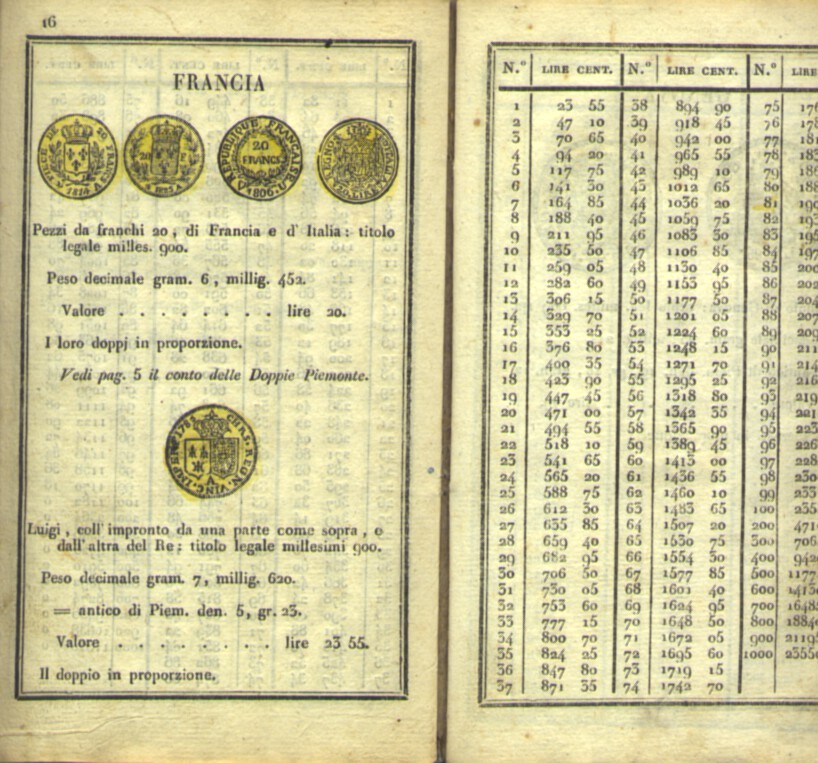 16
FRANCIA
PIECE DE 20 FRANCS 1814 A
REPUBLIQUE FRANÇAISE
20
FRANCS
1806.
Pezzi da franchi 20, di Francia e d' Italia: titolo
legale milles. 900.
Peso decimale gram. 6, millig. 452.
Valore . . . . . . . . lire 20.
I loro doppj in proporzione.
Vedi pag. 5 il conto delle Doppie Piemonte.
CHRS. REGN. VINC. IMPER
Luigi, coll' impronto da una parte come sopra, e
dall'altra del Re: titolo legale millesimi 900.
Peso decimale gram. 7, millig. 620.
== antico di Piem. den. 5, gr. 23.
Valore . . . . . . . . lire 23 55.
Il doppio in proporzione.
N.° LIRE CENT. N.° LIRE CENT. N.° LIRE
1 23 55 38 894 90 75 176
2 47 10 39 918 45 76 178
3 70 65 40 942 00 77 181
4 94 20 41 965 55 78 183
5 117 75 42 989 10 79 186
6 141 30 43 1012 65 80 188
7 164 85 44 1036 20 81 190
8 188 40 45 1059 75 82 193
9 211 95 46 1083 30 83 195
10 235 50 47 1106 85 84 197
11 259 05 48 1130 40 85 200
12 282 60 49 1153 95 86 202
13 306 15 50 1177 50 87 204
14 329 70 51 1201 05 88 207
15 353 25 52 1224 60 89 209
16 376 80 53 1248 15 90 211
17 400 35 54 1271 70 91 214
18 423 90 55 1295 25 92 216
19 447 45 56 1318 80 93 219
20 471 00 57 1342 35 94 221
21 494 55 58 1365 90 95 223
22 518 10 59 1389 45 96 226
23 541 65 60 1413 00 97 228
24 565 20 61 1436 55 98 230
25 588 75 62 1460 10 99 233
26 612 30 63 1483 65 100 235
27 635 85 64 1507 20 200 471
28 659 40 65 1530 75 300 706
29 682 95 66 1554 30 400 942
30 706 50 67 1577 85 500 1177
31 730 05 68 1601 40 600 1413
32 753 60 69 1624 95 700 1648
33 777 15 70 1648 50 800 1884
34 800 70 71 1672 05 900 2119
35 824 25 72 1695 60 1000 2355
36 847 80 73 1719 15
37 871 35 74 1742 70